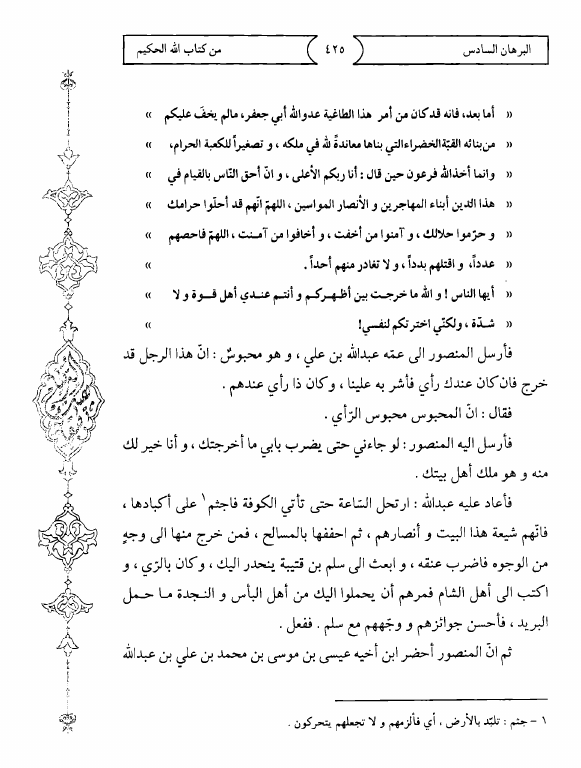 البرهان السادس ٤٢٥ من كتاب الله الحكيم
« أما بعد، فانه قد كان من أمر هذا الطاغية عدوالله أبي جعفر، مالم يخفَ عليكم »
« من بنائه القبّة الخضراء التي بناها معاندةً لله في ملكه، و تصغيراً للكعبة الحرام، »
« وانما أخذ الله فرعون حين قال: أنا ربكم الأعلى، و انّ أحق النّاس بالقيام في »
« هذا الدين أبناء المهاجرين و الأنصار المواسين، اللهمّ انّهم قد أحلّوا حرامك »
« و حرّموا حلالك، و آمنوا من أخفت، و أخافوا من آمنت، اللهمّ فاحصهم »
« عدداً، و اقتلهم بدداً، و لا تغادر منهم أحداً. »
« أيها الناس! و الله ما خرجت بين أظهركم و أنتم عندي أهل قوة و لا »
« شدّة، ولكنّي اخترتكم لنفسي! »
فأرسل المنصور الى عمّه عبدالله بن علي، و هو محبوسٌ: انّ هذا الرجل قد
خرج فان كان عندك رأي فأشر به علينا، وكان ذا رأي عندهم.
فقال: انّ المحبوس محبوس الرّأي.
فأرسل اليه المنصور: لو جاءني حتى يضرب بابي ما أخرجتك، و أنا خير لك
منه و هو ملك أهل بيتك.
فأعاد عليه عبدالله: ارتحل السّاعة حتى تأتي الكوفة فاجثم١ على أكبادها،
فانّهم شيعة هذا البيت و أنصارهم، ثم احففها بالمسالح، فمن خرج منها الى وجهٍ
من الوجوه فاضرب عنقه، و ابعث الى سلم بن قتيبة ينحدر اليك، وكان بالرّي، و
اكتب الى أهل الشام فمرهم أن يحملوا اليك من أهل البأس و النجدة ما حمل
البريد، فأحسن جوائزهم و وجّههم مع سلم. ففعل.
ثم انّ المنصور أحضر ابن أخيه عيسى بن موسى بن محمد بن علي بن عبدالله
١ - جثم: تلبّد بالأرض، أي فألزمهم و لا تجعلهم يتحركون.